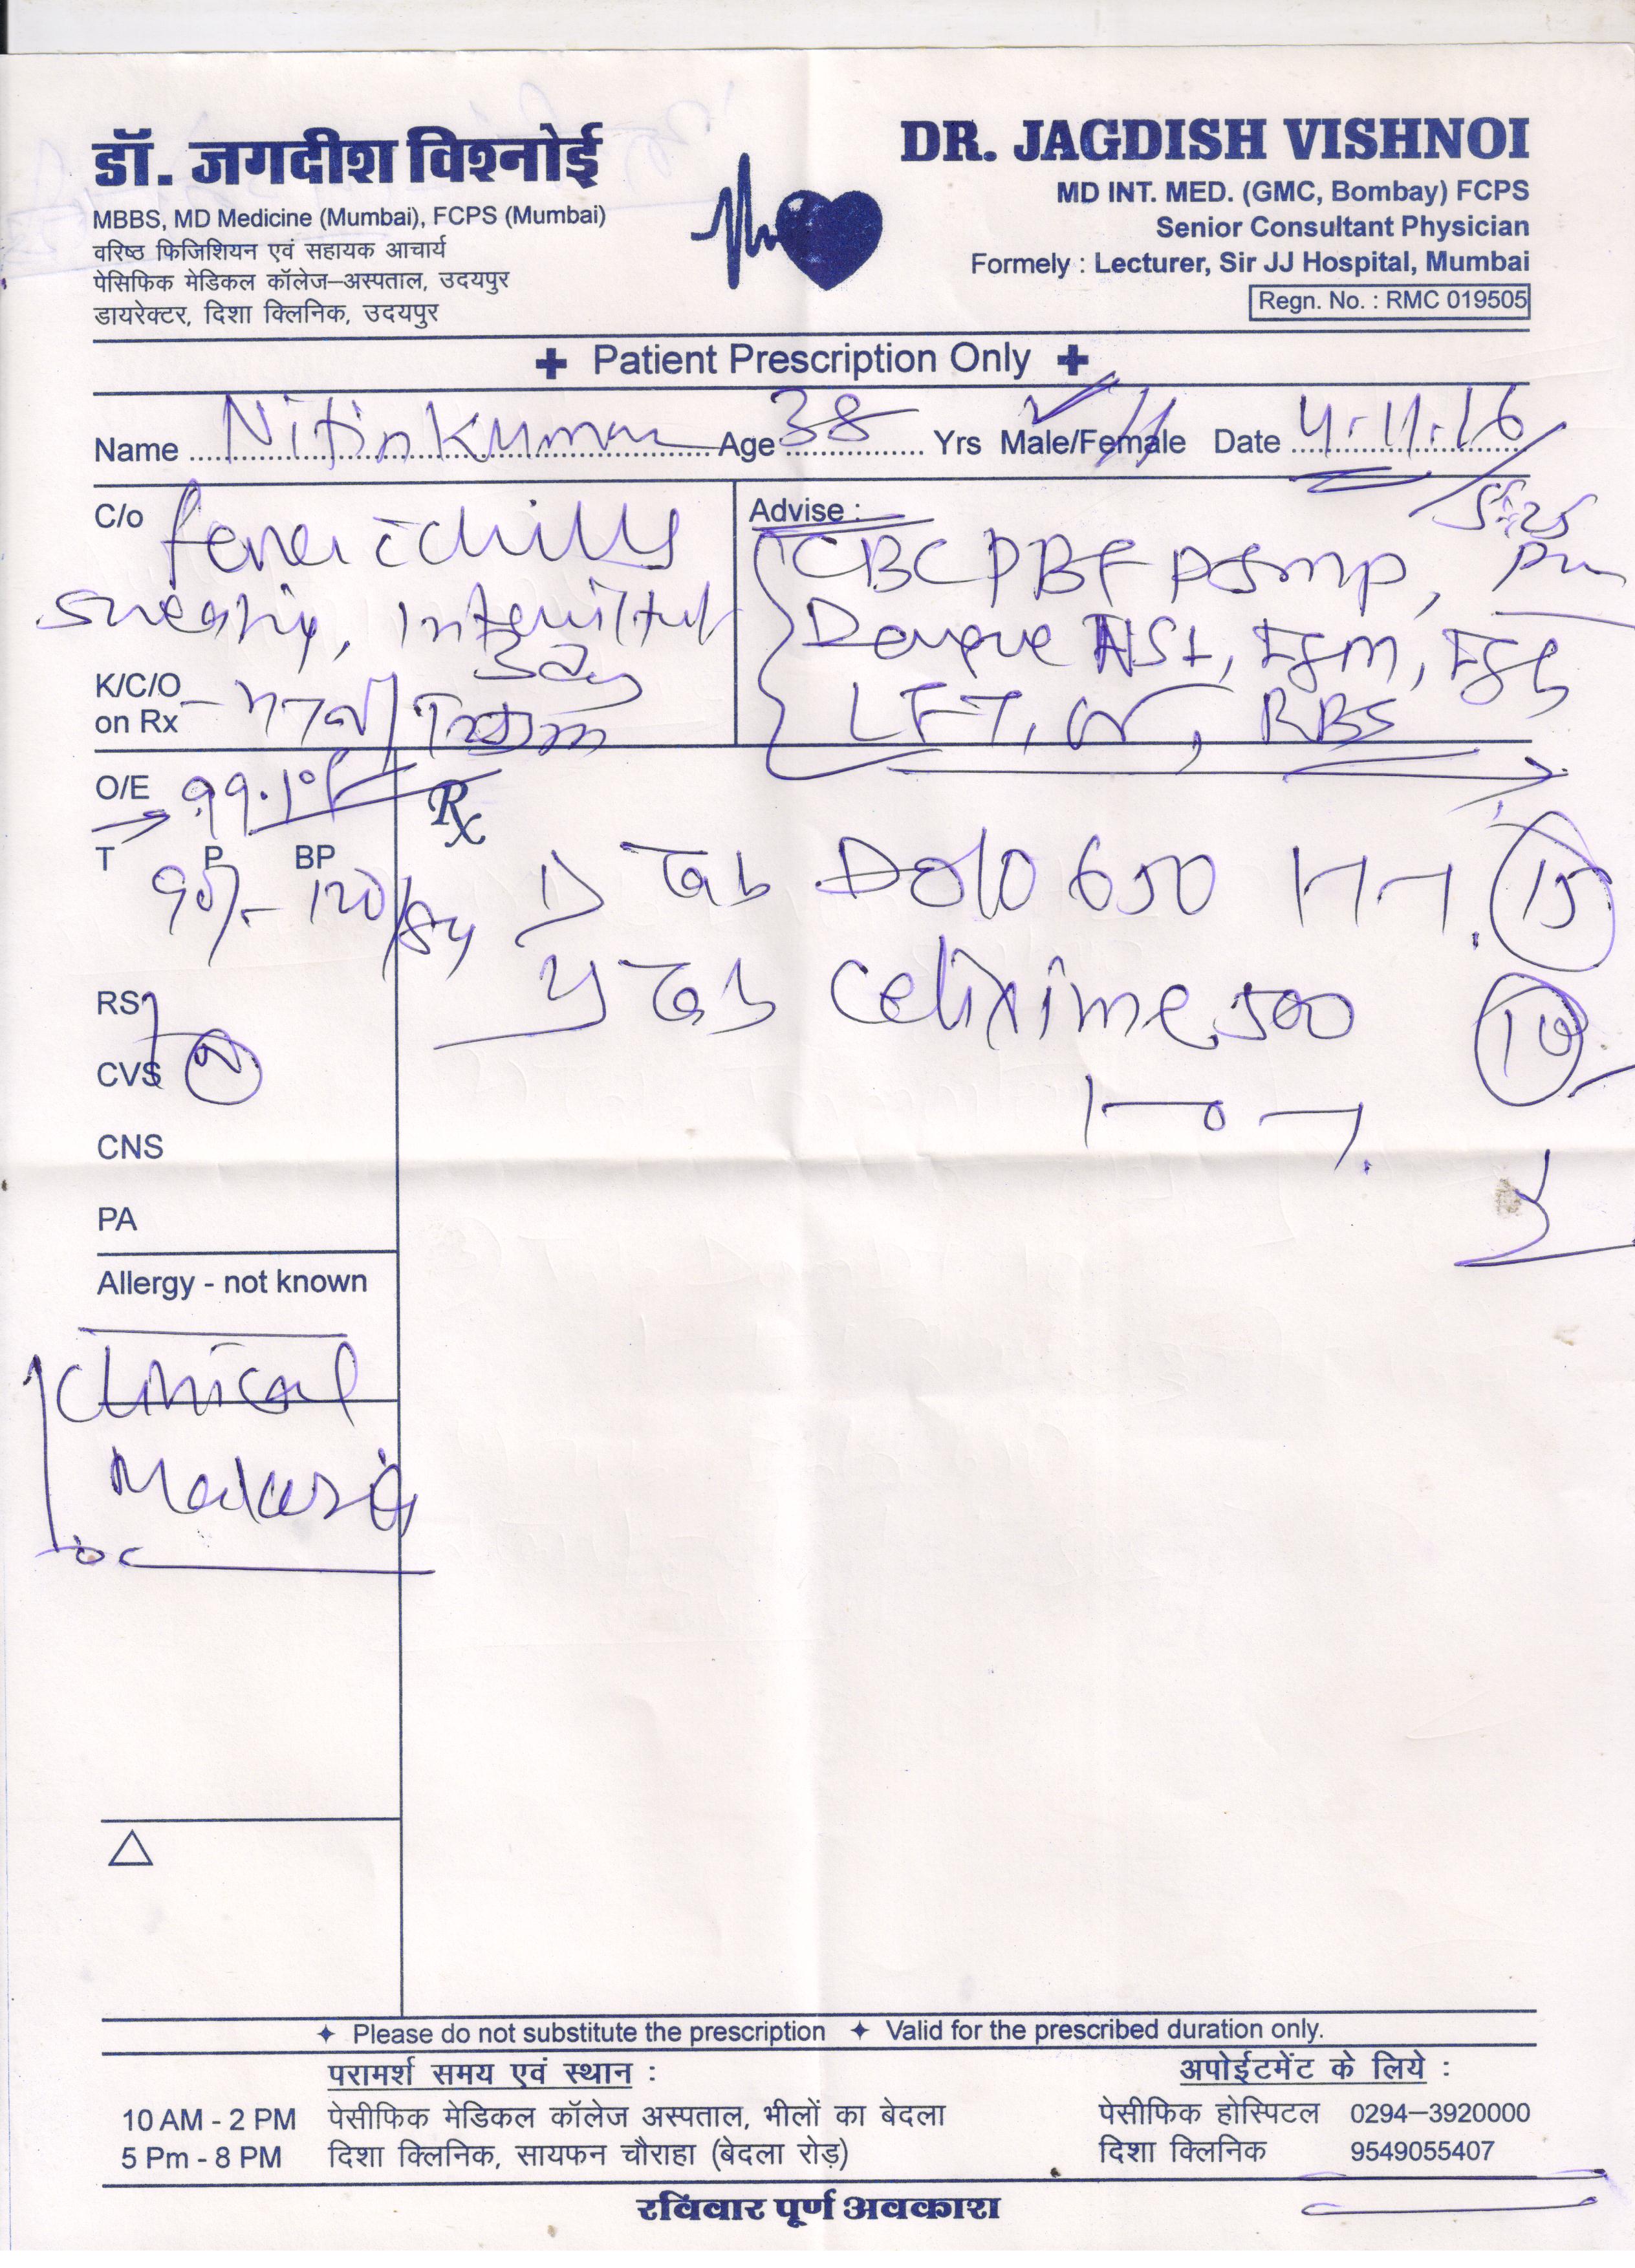 डॉ. जगदीश विश्नोई
MBBS, MD Medicine (Mumbai), FCPS (Mumbai)
वरिष्ठ फिजिशियन एवं सहायक आचार्य
पेसिफिक मेडिकल कॉलेज–अस्पताल, उदयपुर
डायरेक्टर, दिशा क्लिनिक, उदयपुर
DR. JAGDISH VISHNOI
MD INT. MED. (GMC, Bombay) FCPS
Senior Consultant Physician
Formely : Lecturer, Sir JJ Hospital, Mumbai
Regn. No. : RMC 019505
Patient Prescription Only
Name Nitin Kumar Age 38 Yrs Male/Female Date 4.11.16
C/o fever c chills
sweating, Intermittent
3 day
K/C/O
on Rx
Advise :
5:25
pm
CBC PBF PSMP,
Dengue NS1, IgM, IgG
LFT, Cr, RBS
O/E 99.1°F
T P BP
90/- 120/84
Rx
1) Tab Dolo 650 1-1-1. 15
2) Tab Cefixime 500 10
1-0-1.
RS
CVS N
CNS
PA
Allergy - not known
Clinical
Malaria
△
Please do not substitute the prescription Valid for the prescribed duration only.
परामर्श समय एवं स्थान :
10 AM - 2 PM पेसीफिक मेडिकल कॉलेज अस्पताल, भीलों का बेदला
5 Pm - 8 PM दिशा क्लिनिक, सायफन चौराहा (बेदला रोड़)
अपोईटमेंट के लिये :
पेसीफिक होस्पिटल 0294–3920000
दिशा क्लिनिक 9549055407
रविवार पूर्ण अवकाश